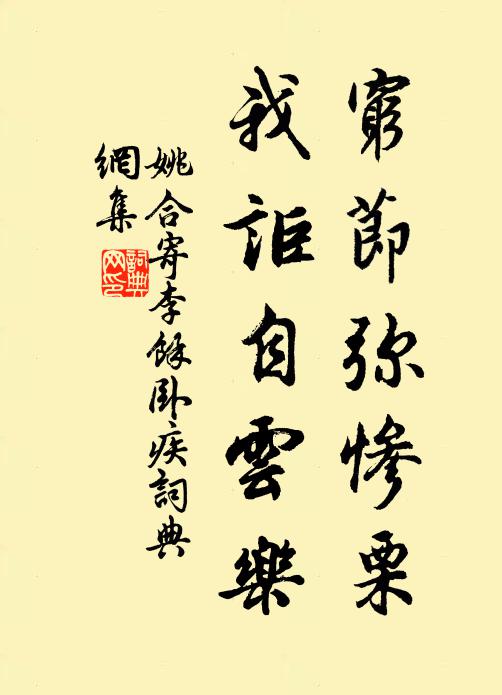 窮節弥慘栗
我詎自雲樂
姚合寄李餘臥疾詞典
網集
詞典网印